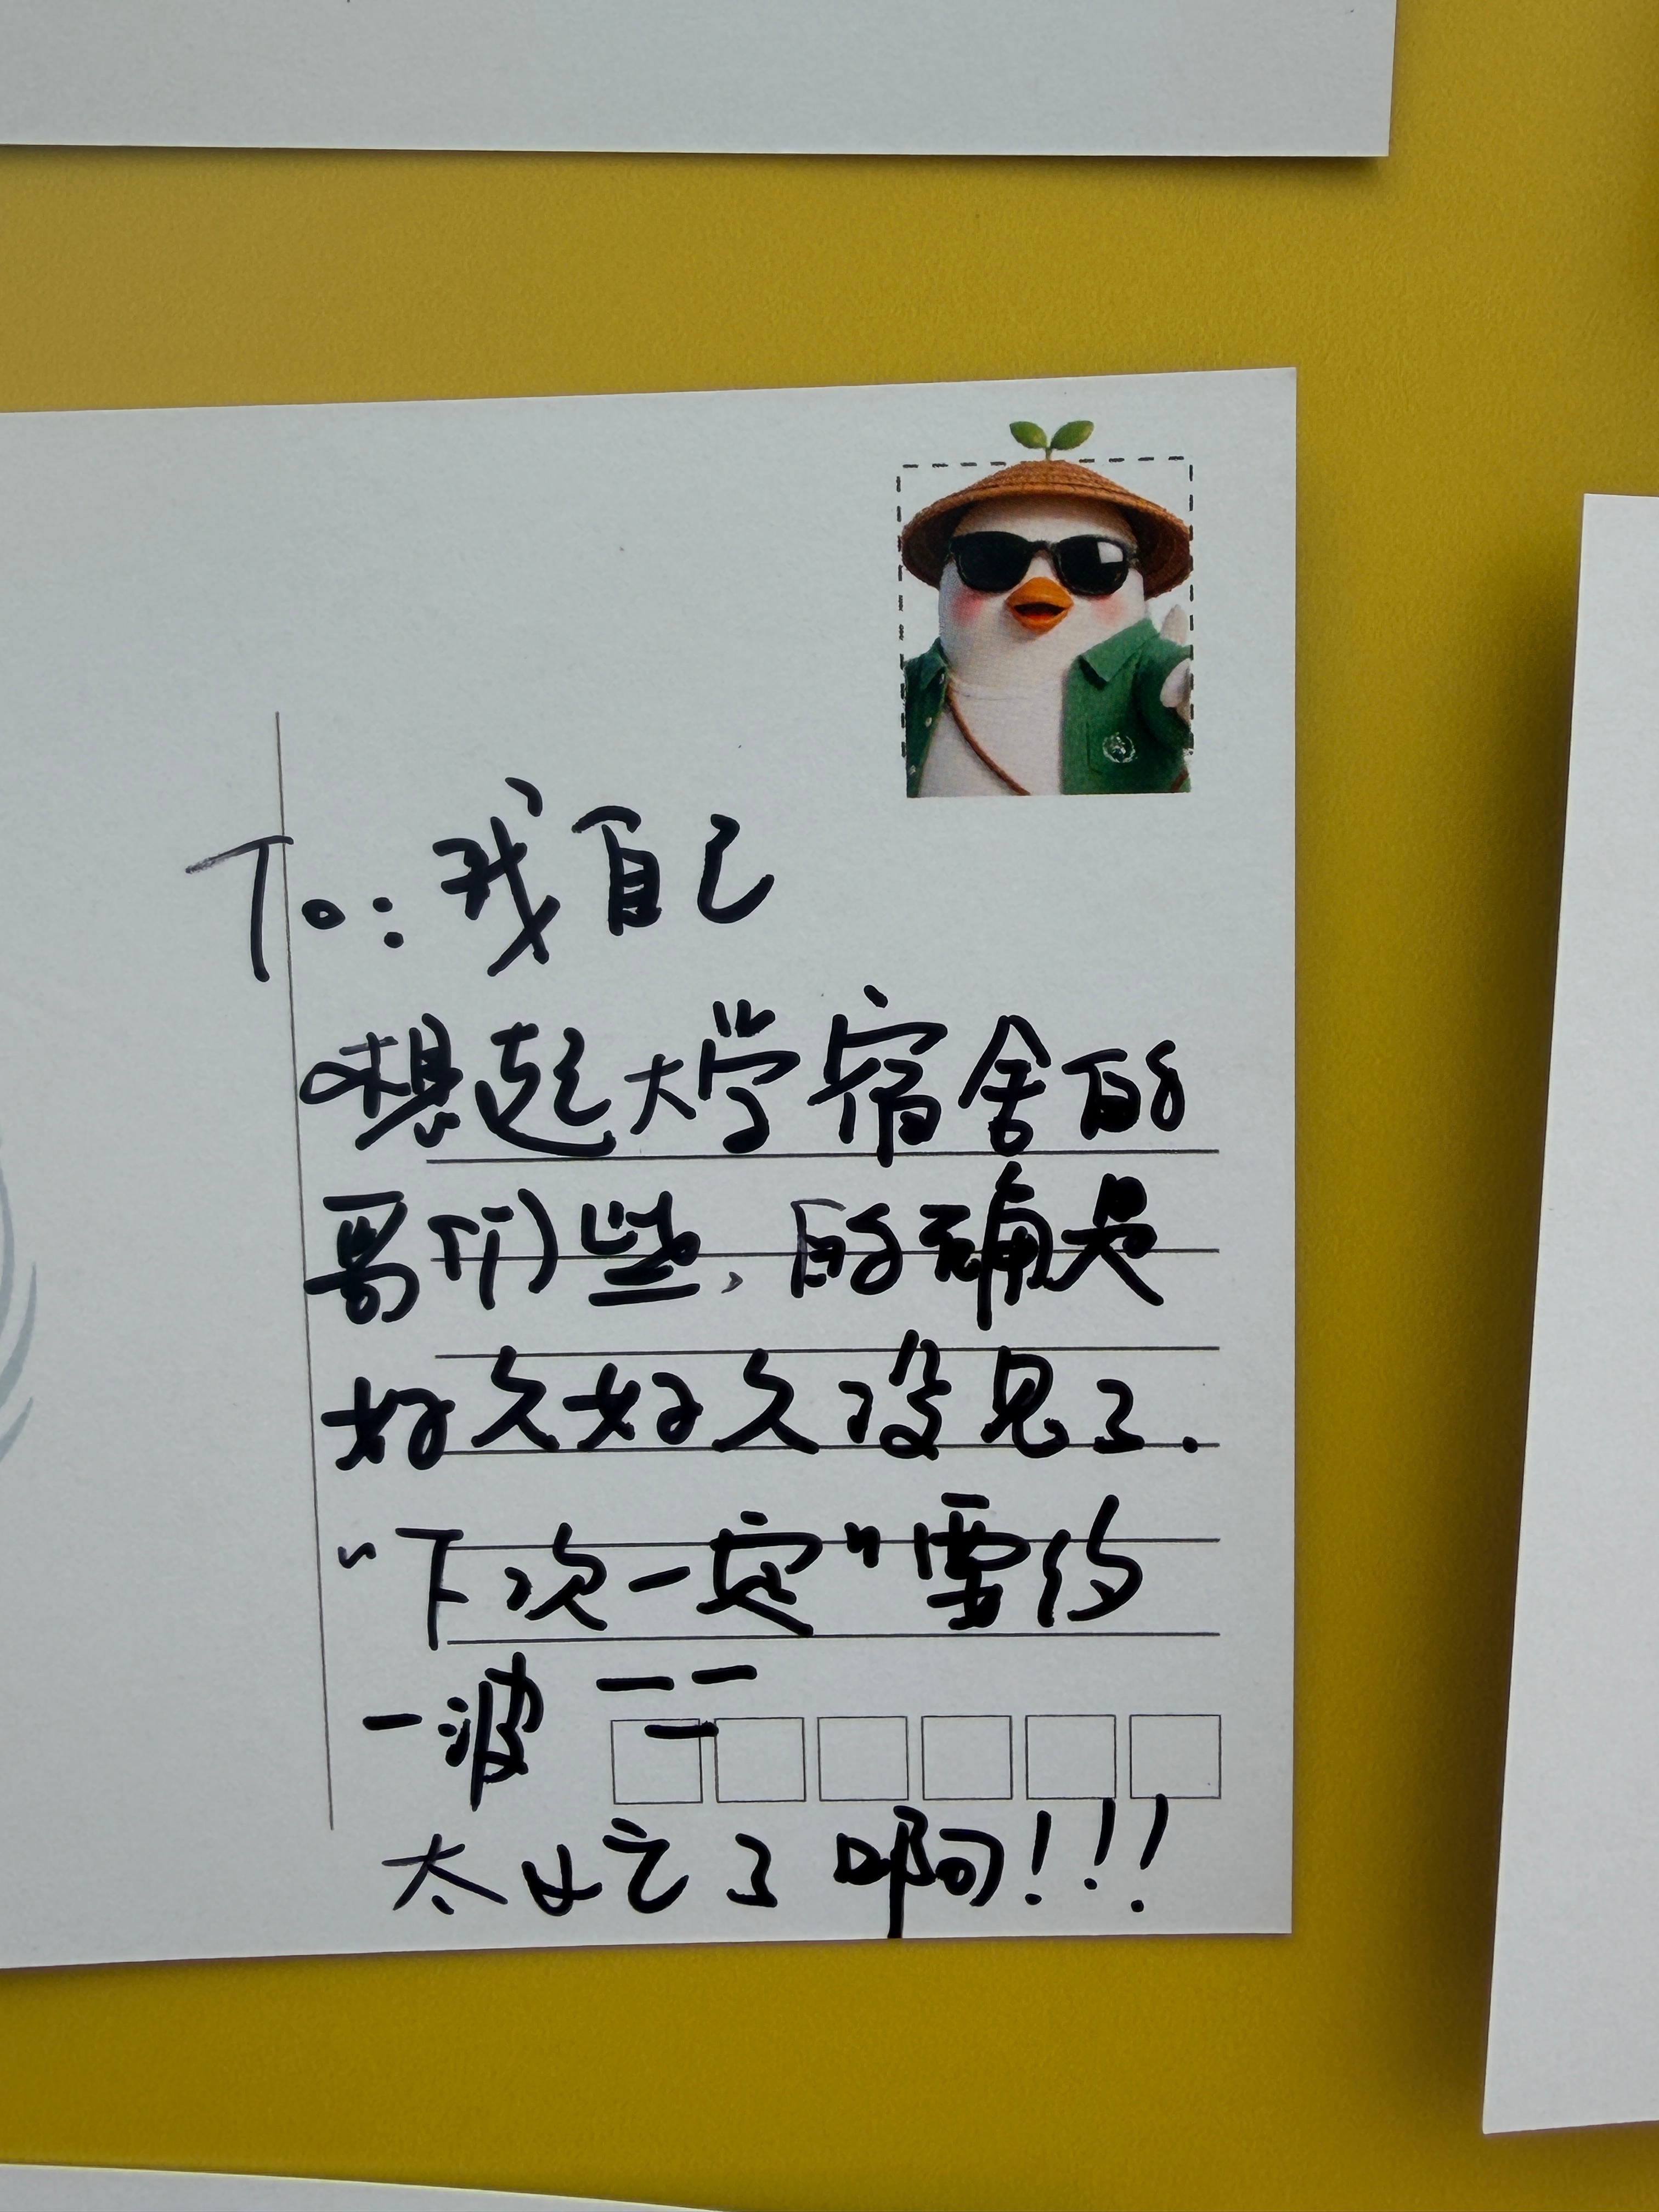 To: 我自己
想起大学宿舍的
哥们些,的确是
好久好久没见了.
“下次一定”要约
一波
太忙了啊!!!